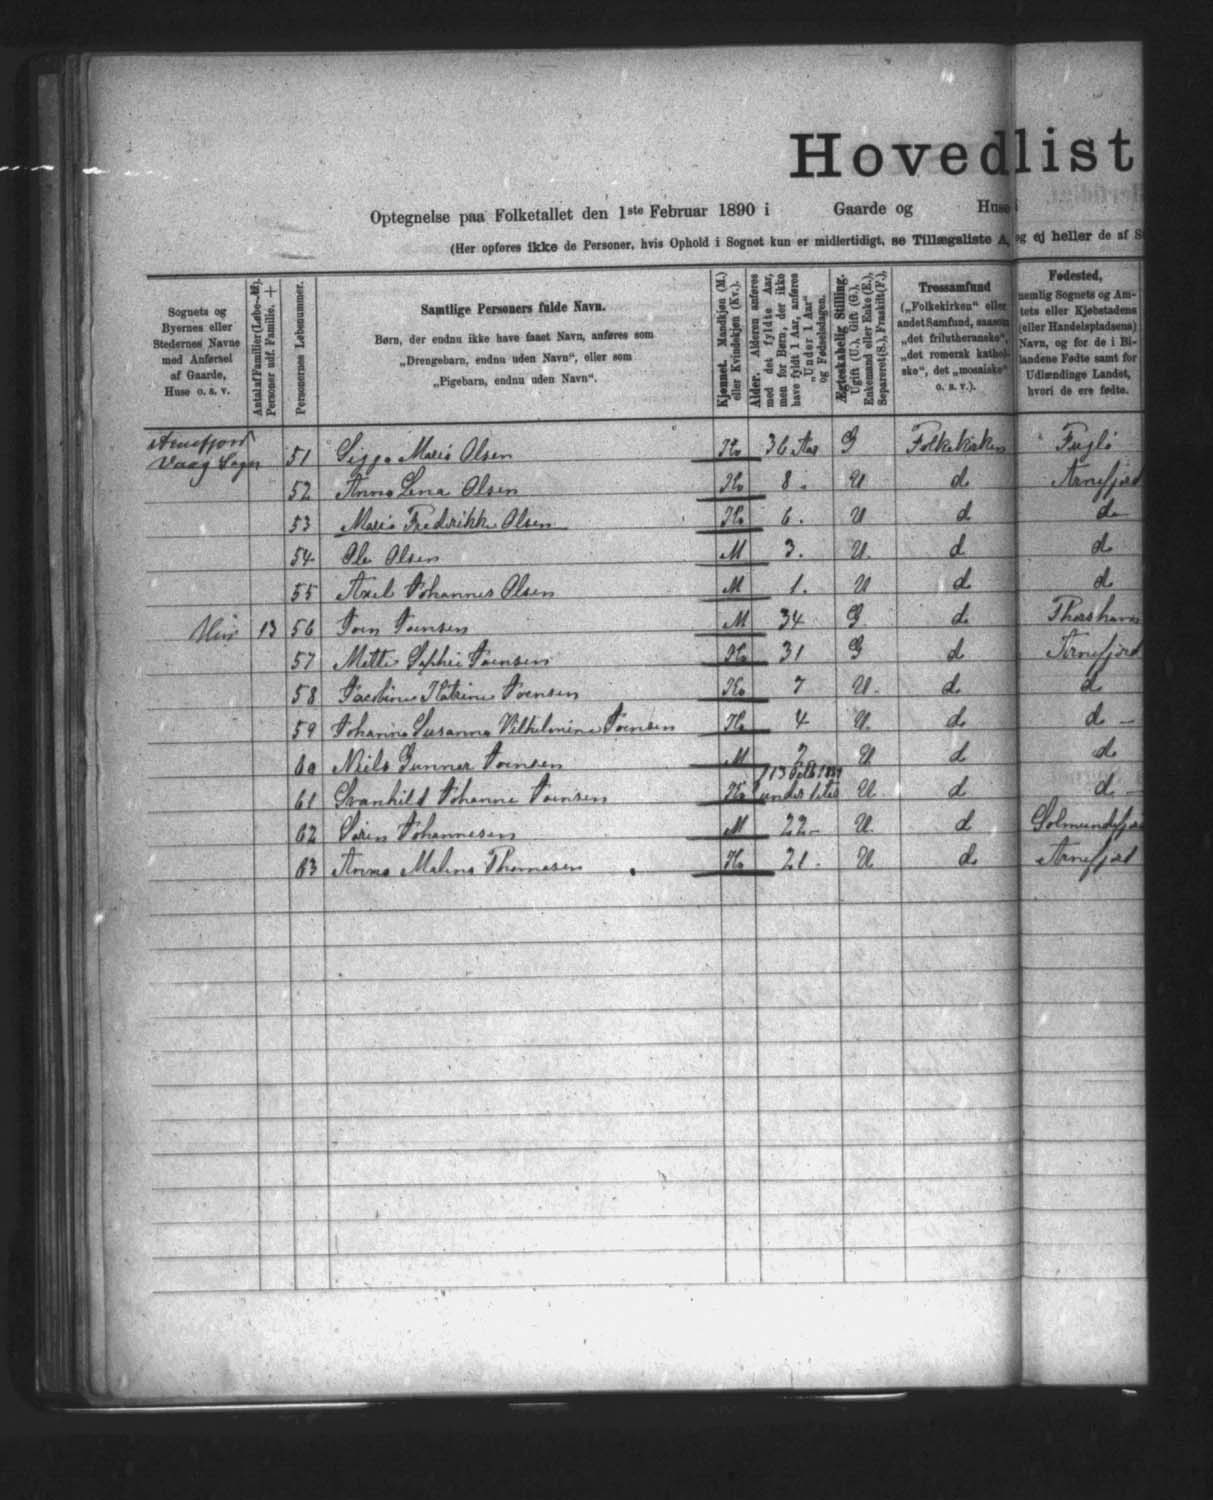 Hovedlist
Optegnelse paa Folketallet den 1ste Februar 1890 i Gaarde og Huse
(Her opføres ikke de Personer, hvis Ophold i Sognet kun er midlertidigt, se Tillægsliste A, og ej heller de af
Sognets og Byernes eller Stedernes Navne med Anførsel af Gaarde, Huse o. s. v.
Antal af Familier (Løbe-Nr.). Personer udf. Familie. +
Personernes Løbenummer.
Samtlige Personers fulde Navn.
Børn, der endnu ikke have faaet Navn, anføres som
„Drengebarn, endnu uden Navn“, eller som
„Pigebarn, endnu uden Navn“.
Kjønnet. Mandkjøn (M.) eller Kvindekjøn (Kv.).
Alder. Alderen anføres med det fyldte Aar, men for Børn, der ikke have fyldt 1 Aar, anføres „Under 1 Aar“ og Fødselsdagen.
Ægteskabelig Stilling. Ugift (U.), Gift (G.), Enkemand eller Enke (E.), Separeret (S.), Fraskilt (F.).
Trossamfund
(„Folkekirken“ eller
andet Samfund, saasom
„det frilutheranske“,
„det romersk kathol-
ske“, det „mosaiske“
o. s. v.).
Fødested,
nemlig Sognets og Am-
tets eller Kjøbstadens
(eller Handelspladsens)
Navn, og for de i Bi-
landene Fødte samt for
Udlændinge Landet,
hvori de ere fødte.
Arnefjord
Vaag Sogn 51 Marie Olsen Kv 36 Aar G Folkekirken Fuglø
52 Anna Lena Olsen Kv 8. U d Arnefjord
53 Marie Fredrikke Olsen Kv 6. U d d
54 Ole Olsen M 3. U. d d
55 Axel Johannes Olsen M 1. U d d
13 56 Joen Joensen M 34 G d Thorshavn
57 Mette Sophie Joensen Kv 31 G d Arnefjord
58 Jacobine Katrine Joensen Kv 7 U. d d
59 Johanne Susanna Vilhelmine Joensen Kv 4 U. d d
60 Niels Gunner Joensen M 2 U d d
61 Svanhild Johanne Joensen Kv U. d d
62 Sören Johannesen M 22 U. d
63 Anna Malena Thomasen Kv 21. U d Arnefjord